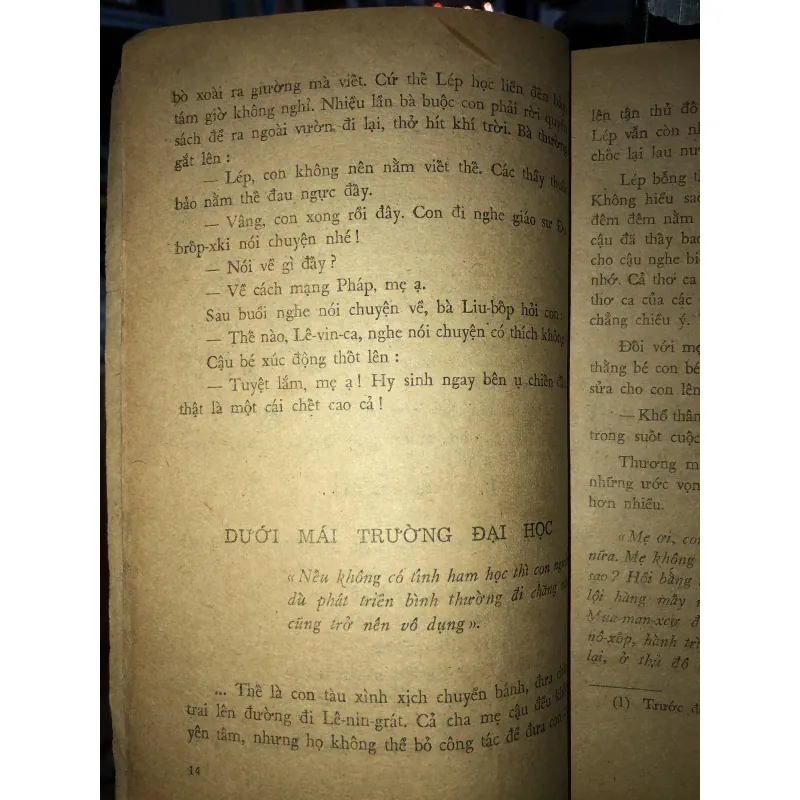 bò xoài ra giường mà viết. Cứ thế Lép học liền đến bảy,
tám giờ không nghỉ. Nhiều lần bà buộc con phải rời quyển
sách để ra ngoài vườn đi lại, thở hít khí trời. Bà thường
gắt lên :
— Lép, con không nên nằm viết thế. Các thầy thuốc
bảo nằm thế đau ngực đấy.
— Vâng, con xong rồi đây. Con đi nghe giáo sư Đô-
brôp-xki nói chuyện nhé !
— Nói về gì đấy ?
— Về cách mạng Pháp, mẹ ạ.
Sau buổi nghe nói chuyện về, bà Liu-bôp hỏi con :
— Thế nào, Lê-vin-ca, nghe nói chuyện có thích không
Cậu bé xúc động thốt lên :
— Tuyệt lắm, mẹ ạ ! Hy sinh ngay bên ụ chiến đấu
thật là một cái chết cao cả !
DƯỚI MÁI TRƯỜNG ĐẠI HỌC
«Nếu không có tính ham học thì con người
dù phát triển bình thường đi chăng nữa
cũng trở nên vô dụng».
... Thế là con tàu xình xịch chuyển bánh, đưa
trai lên đường đi Lê-nin-grát. Cả cha mẹ cậu đều không
yên tâm, nhưng họ không thể bỏ công tác để đưa con
14
lên tận thủ đô
Lép vẫn còn
chốc lại lau
Lép bỗng
Không hiểu sao
đêm đêm nằm
cậu đã thấy
cho cậu nghe
nhớ. Cả thơ ca
thơ ca của các
chẳng chiều ý.
Đối với mẹ
thằng bé con bé
sửa cho con lên
— Khổ thân
trong suốt cuộc
Thương
những ước vọng
hơn nhiều.
«Mẹ ơi, con
nữa. Mẹ không
sao ? Hồi bằng
lội hàng mấy
Mua-man-xcơ
nô-xôp, hành
lại, ở thủ đô
(1) Trước